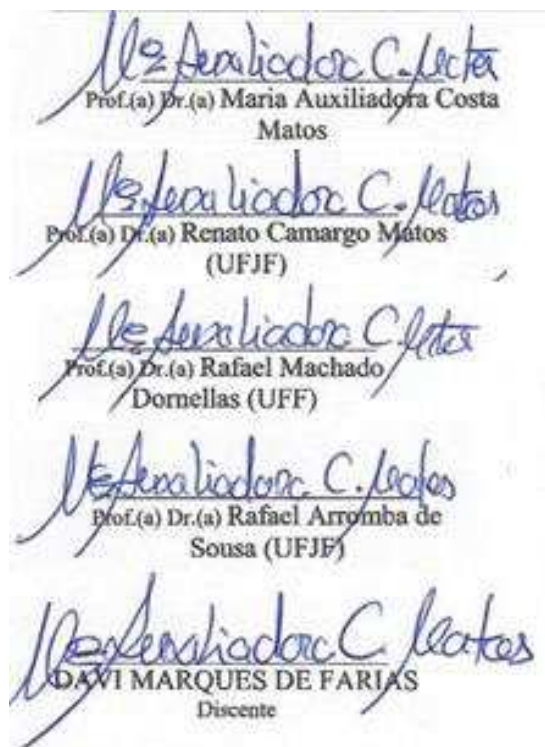 Mª Auxiliadora C. Matos
Prof.(a) Dr.(a) Maria Auxiliadora Costa
Matos
Mª Auxiliadora C. Matos
Prof.(a) Dr.(a) Renato Camargo Matos
(UFJF)
Mª Auxiliadora C. Matos
Prof.(a) Dr.(a) Rafael Machado
Dornellas (UFF)
Mª Auxiliadora C. Matos
Prof.(a) Dr.(a) Rafael Arromba de
Sousa (UFJF)
Mª Auxiliadora C. Matos
DAVI MARQUES DE FARIAS
Discente